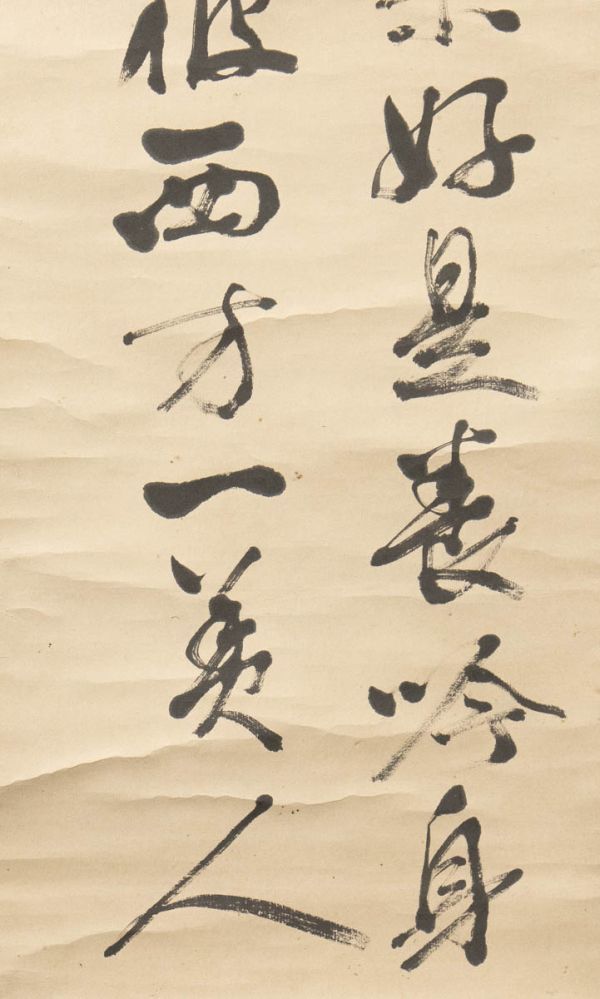 好是養吟身
彼西方一美人